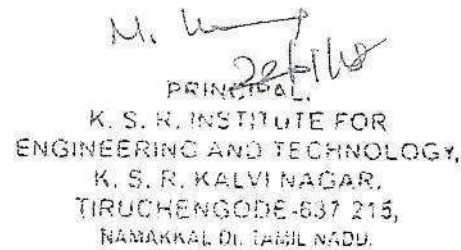 M.
PRINCIPAL,
K. S. R. INSTITUTE FOR
ENGINEERING AND TECHNOLOGY,
K. S. R. KALVI NAGAR,
TIRUCHENGODE-637 215,
NAMAKKAL Dt. TAMIL NADU.